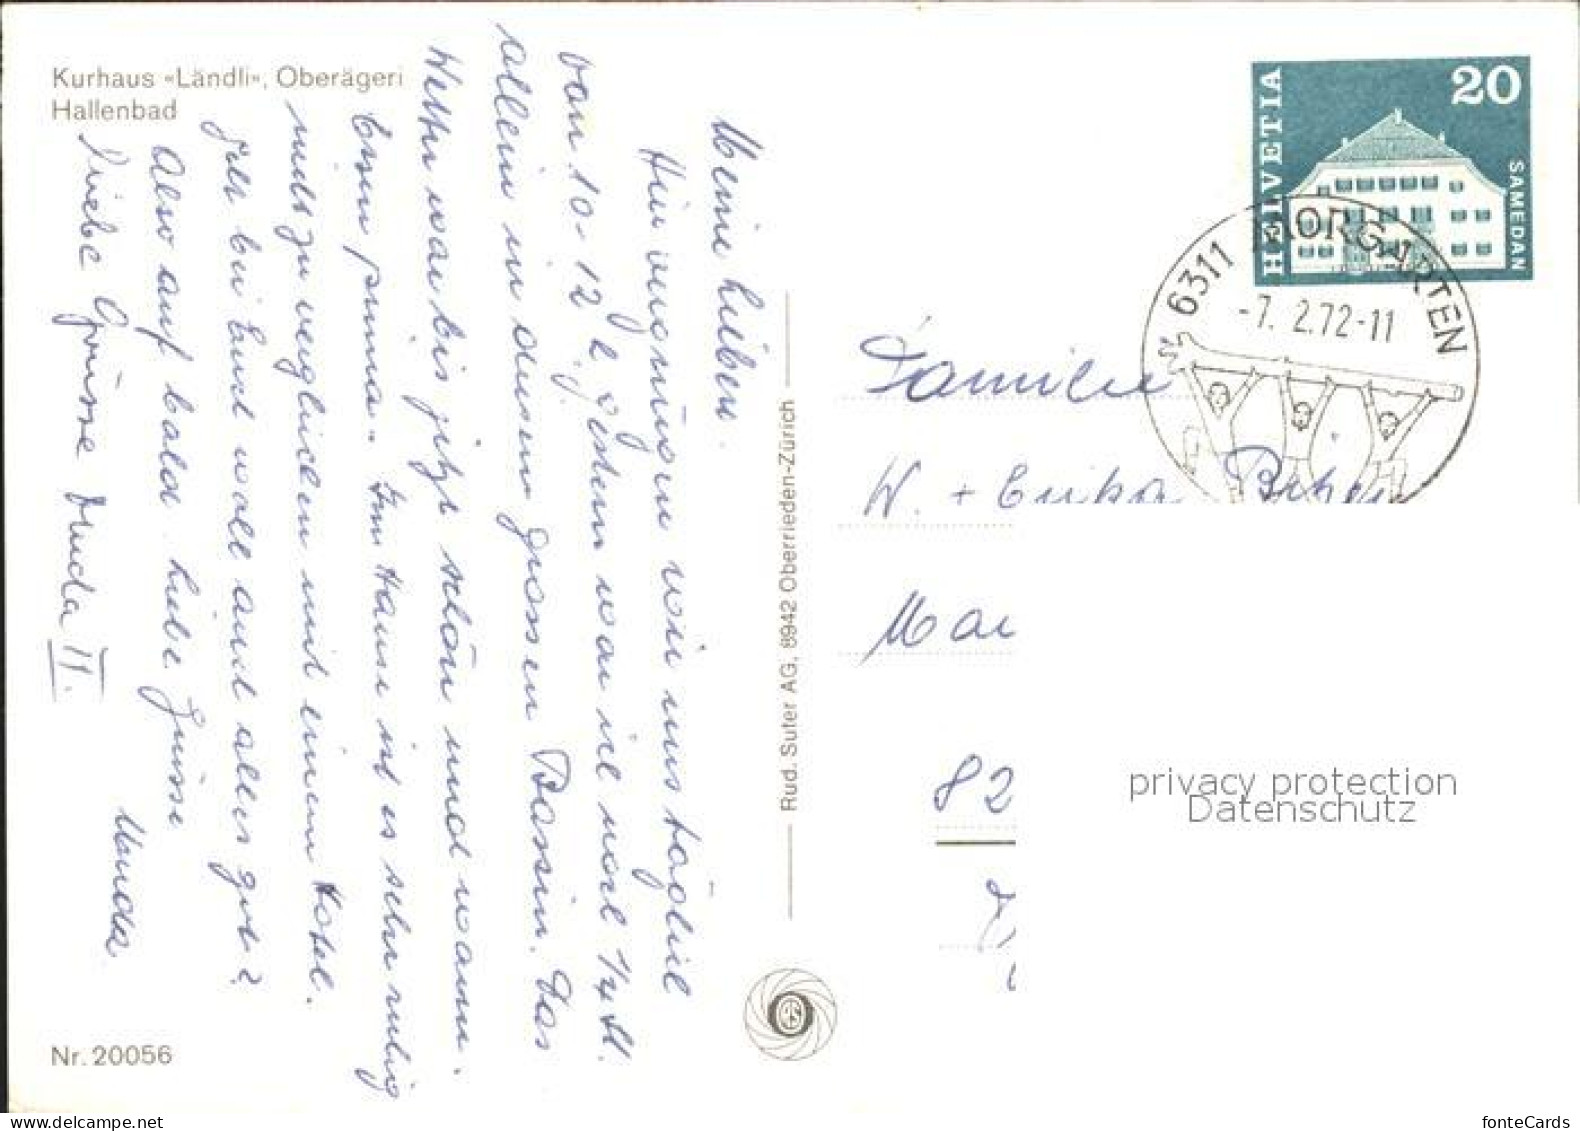 Kurhaus «Ländli», Oberägeri
Hallenbad
Meine Lieben.
Hier vergnügen wir uns täglich
von 10-12 h gestern war ich noch 1/4 St.
allein in diesem grossen Bassin. Das
Wetter war bis jetzt schön und warm.
Essen prima. Im Hause ist es sehr ruhig
nicht zu vergleichen mit einem Hotel.
Geht bei Euch wohl auch alles gut?
Also auf bald. Liebe Grüsse
Liebe Grüsse II.
Nr. 20056
Rud. Suter AG, 8942 Oberrieden-Zürich
HELVETIA
20
SAMEDAN
6311 MORGARTEN
-7. 2.72-11
Familie
W. + Erika
82
privacy protection
Datenschutz
www.delcampe.net
fonteCards